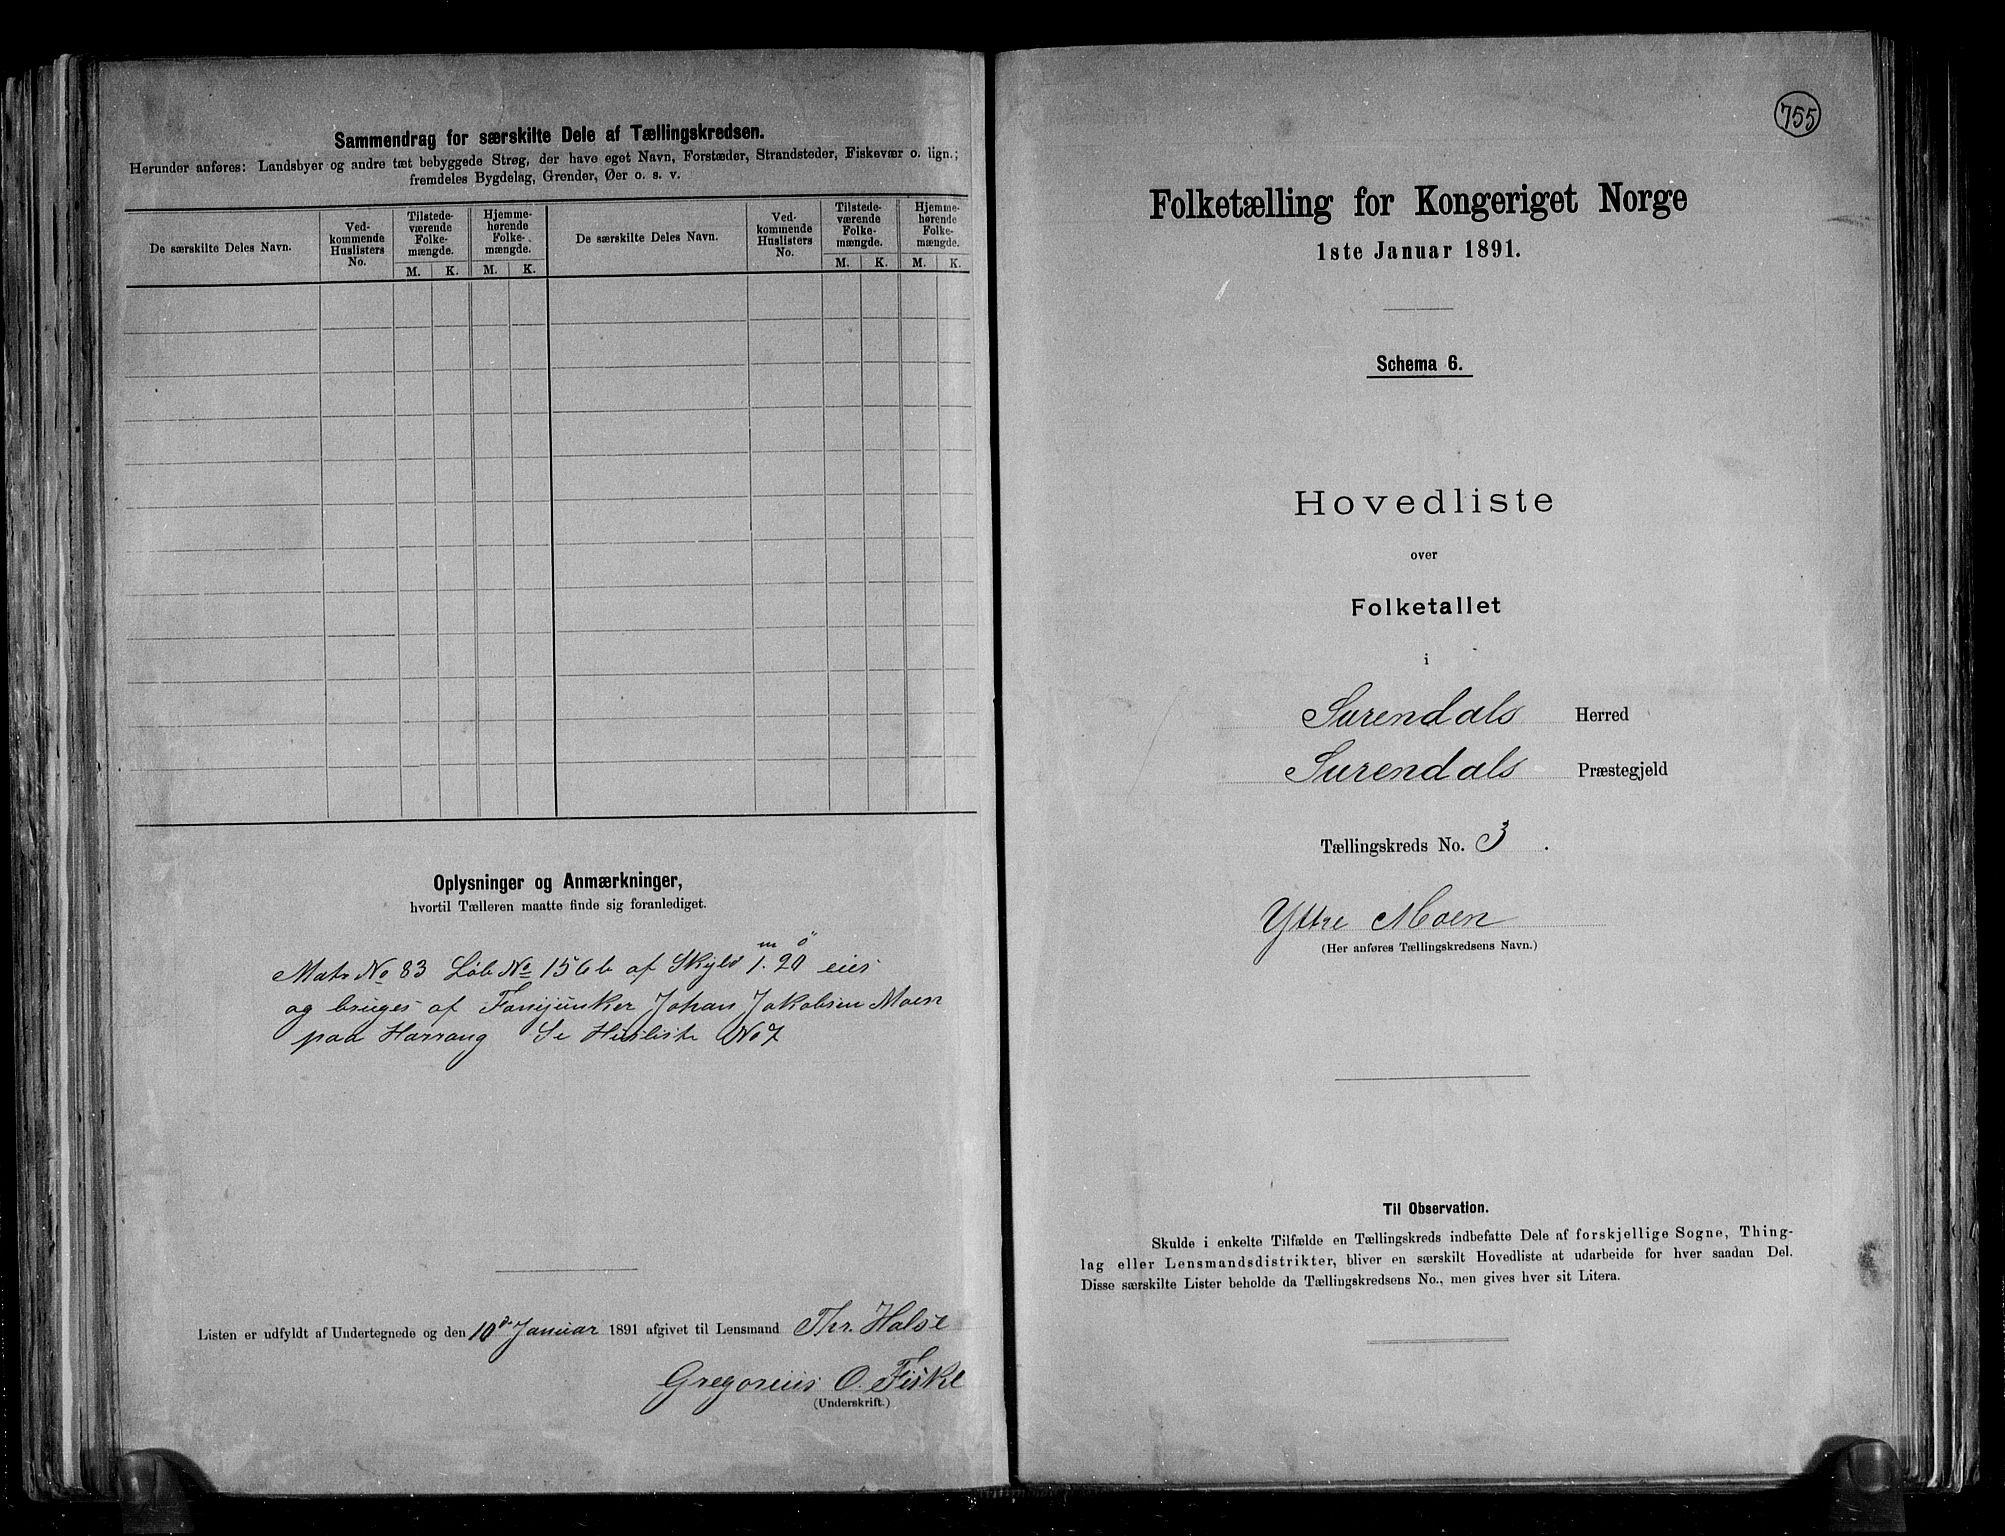 Sammendrag for særskilte Dele af Tællingskredsen.
Herunder anføres: Landsbyer og andre tæt bebyggede Strøg, der have eget Navn, Forstæder, Strandsteder, Fiskevær o. lign.;
fremdeles Bygdelag, Grender, Øer o. s. v.
De særskilte Deles Navn.
Ved-
kommende
Huslisters
No.
Tilstede-
værende
Folke-
mængde.
Hjemme-
hørende
Folke-
mængde.
M. K. M. K.
De særskilte Deles Navn.
Ved-
kommende
Huslisters
No.
Tilstede-
værende
Folke-
mængde.
Hjemme-
hørende
Folke-
mængde.
M. K. M. K.
Oplysninger og Anmærkninger,
hvortil Tælleren maatte finde sig foranlediget.
m ö
Matr No 83 Løb No 156 b af Skyld 1. 20 eies
og bruges af Fanejunker Johan Jakobsen Moen
paa Harrang Se Husliste No 7
Listen er udfyldt af Undertegnede og den 10de Januar 1891 afgivet til Lensmand Thr. Halse
Gregorius O. Fiske
(Underskrift.)
755
Folketælling for Kongeriget Norge
1ste Januar 1891.
Schema 6.
Hovedliste
over
Folketallet
i
Surendals Herred
Surendals Præstegjeld
Tællingskreds No. 3.
Yttre Moen
(Her anføres Tællingskredsens Navn.)
Til Observation.
Skulde i enkelte Tilfælde en Tællingskreds indbefatte Dele af forskjellige Sogne, Thing-
lag eller Lensmandsdistrikter, bliver en særskilt Hovedliste at udarbeide for hver saadan Del.
Disse særskilte Lister beholde da Tællingskredsens No., men gives hver sit Litera.